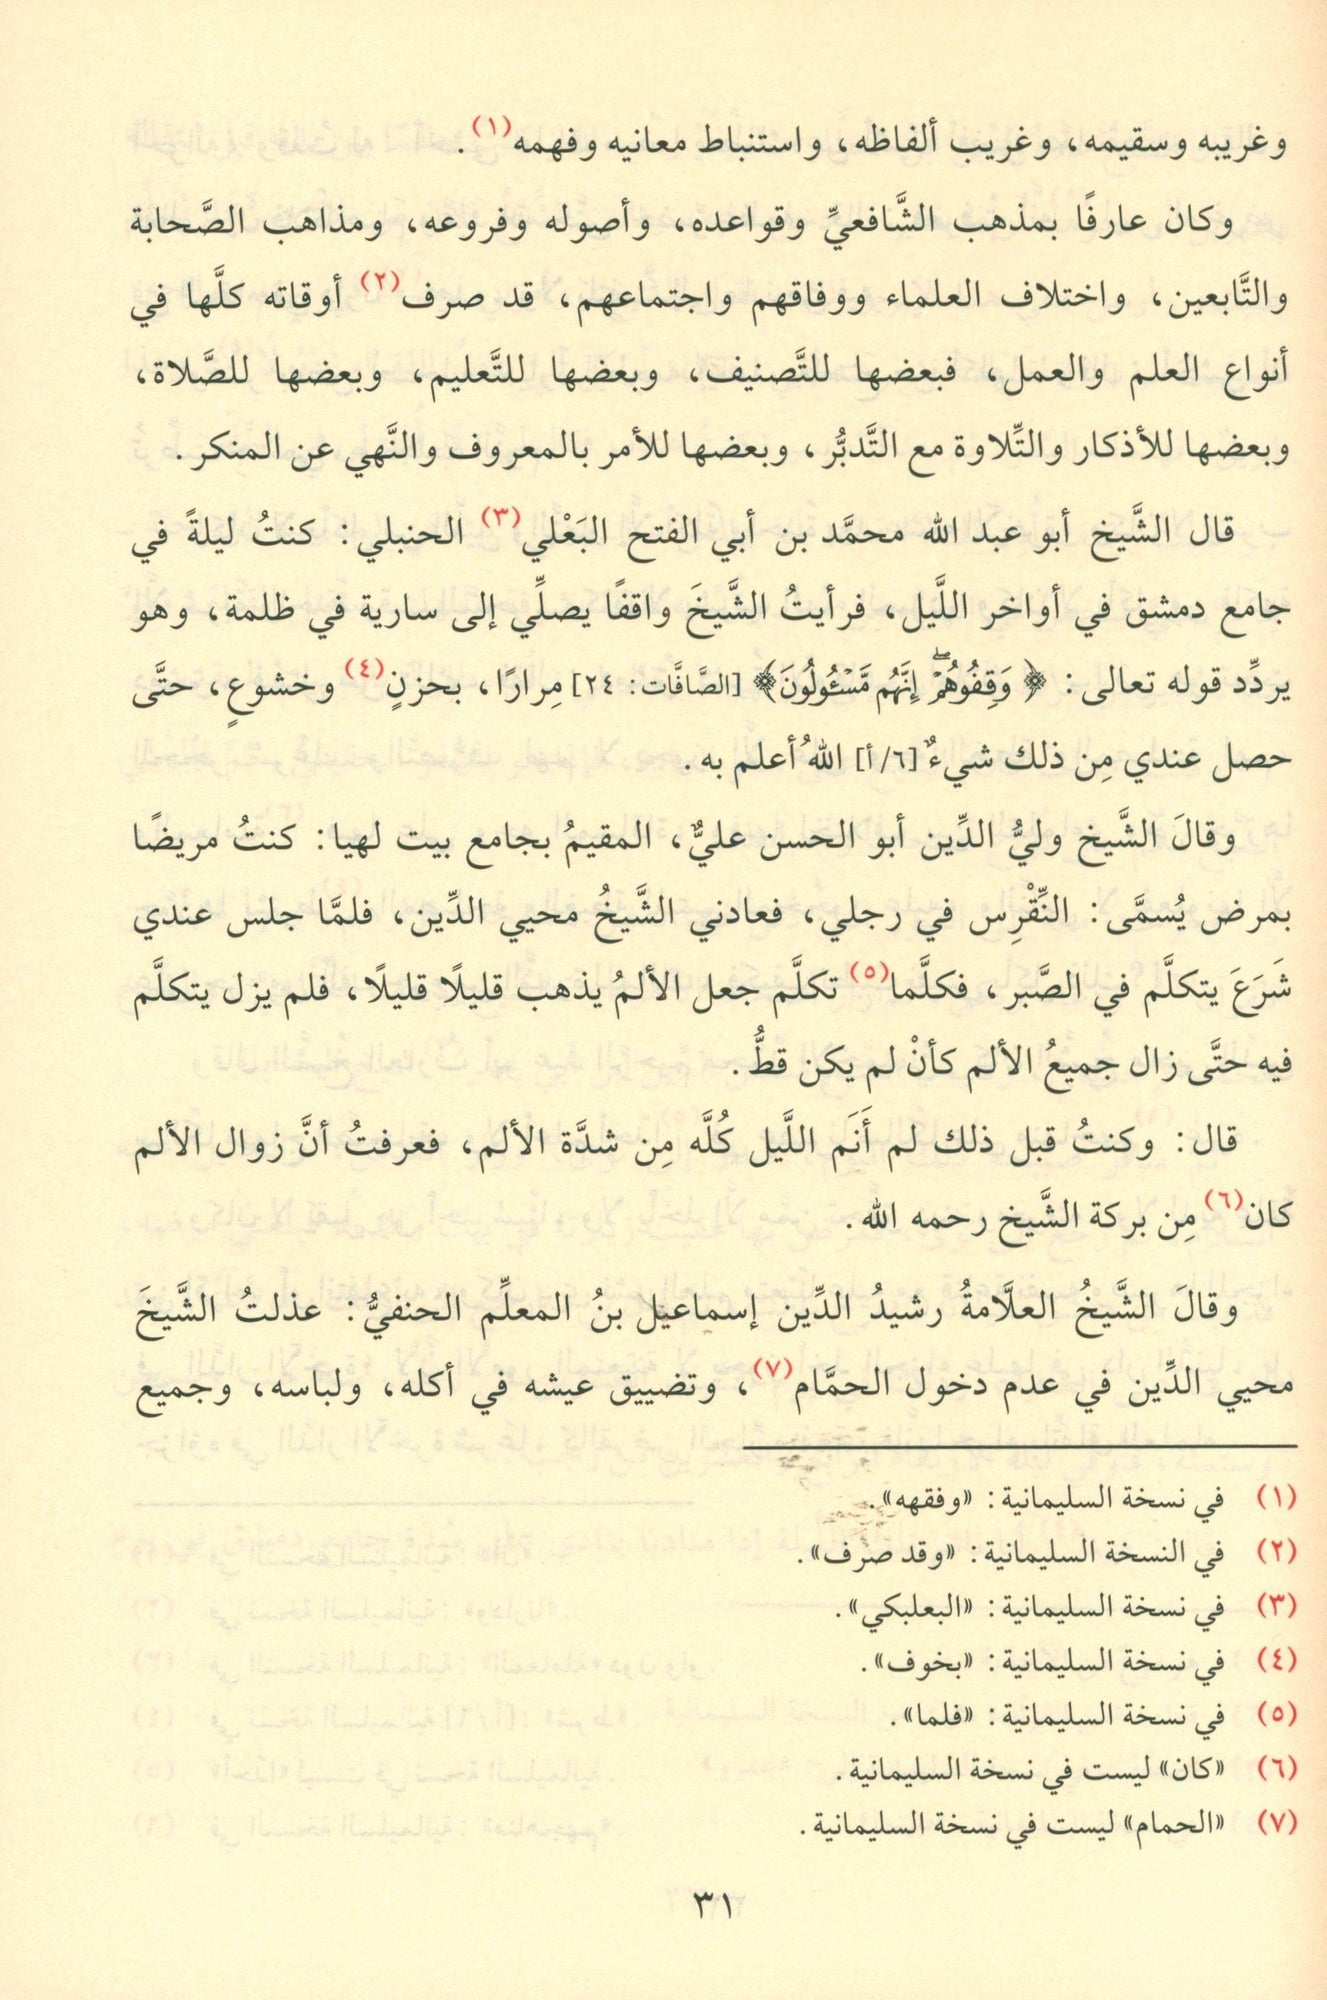 وغريبه وسقيمه، وغريب ألفاظه، واستنباط معانيه وفهمه(١).
وكان عارفًا بمذهب الشَّافعيِّ وقواعده، وأصوله وفروعه، ومذاهب الصَّحابة
والتَّابعين، واختلاف العلماء ووفاقهم واجتماعهم، قد صرف(٢) أوقاته كلَّها في
أنواع العلم والعمل، فبعضها للتَّصنيف، وبعضها للتَّعليم، وبعضها للصَّلاة،
وبعضها للأذكار والتِّلاوة مع التَّدبُّر، وبعضها للأمر بالمعروف والنَّهي عن المنكر.
قال الشَّيخ أبو عبد الله محمَّد بن أبي الفتح البَعْلي(٣) الحنبلي: كنتُ ليلةً في
جامع دمشق في أواخر اللَّيل، فرأيتُ الشَّيخَ واقفًا يصلِّي إلى سارية في ظلمة، وهو
يردِّد قوله تعالى: ﴿وَقِفُوهُمْۖ إِنَّهُم مَّسْـُٔولُونَ﴾ [الصَّافَّات: ٢٤] مِرارًا، بحزنٍ(٤) وخشوعٍ، حتَّى
حصل عندي مِن ذلك شيءٌ [٦/أ] اللهُ أعلم به.
وقالَ الشَّيخ وليُّ الدِّين أبو الحسن عليٌّ، المقيمُ بجامع بيت لهيا: كنتُ مريضًا
بمرض يُسمَّى: النِّقْرِس في رجلي، فعادني الشَّيخُ محيي الدِّين، فلمَّا جلس عندي
شَرَعَ يتكلَّم في الصَّبر، فكلَّما(٥) تكلَّم جعل الألمُ يذهب قليلًا قليلًا، فلم يزل يتكلَّم
فيه حتَّى زال جميعُ الألم كأنْ لم يكن قطُّ.
قال: وكنتُ قبل ذلك لم أَنَم اللَّيل كُلَّه مِن شدَّة الألم، فعرفتُ أنَّ زوال الألم
كان(٦) مِن بركة الشَّيخ رحمه الله.
وقالَ الشَّيخُ العلَّامةُ رشيدُ الدِّين إسماعيل بنُ المعلِّم الحنفيُّ: عذلتُ الشَّيخَ
محيي الدِّين في عدم دخول الحمَّام(٧)، وتضييق عيشه في أكله، ولباسه، وجميع
(١) في نسخة السليمانية: «وفقهه».
(٢) في النسخة السليمانية: «وقد صرف».
(٣) في نسخة السليمانية: «البعلبكي».
(٤) في نسخة السليمانية: «بخوف».
(٥) في نسخة السليمانية: «فلما».
(٦) «كان» ليست في نسخة السليمانية.
(٧) «الحمام» ليست في نسخة السليمانية.
٣١